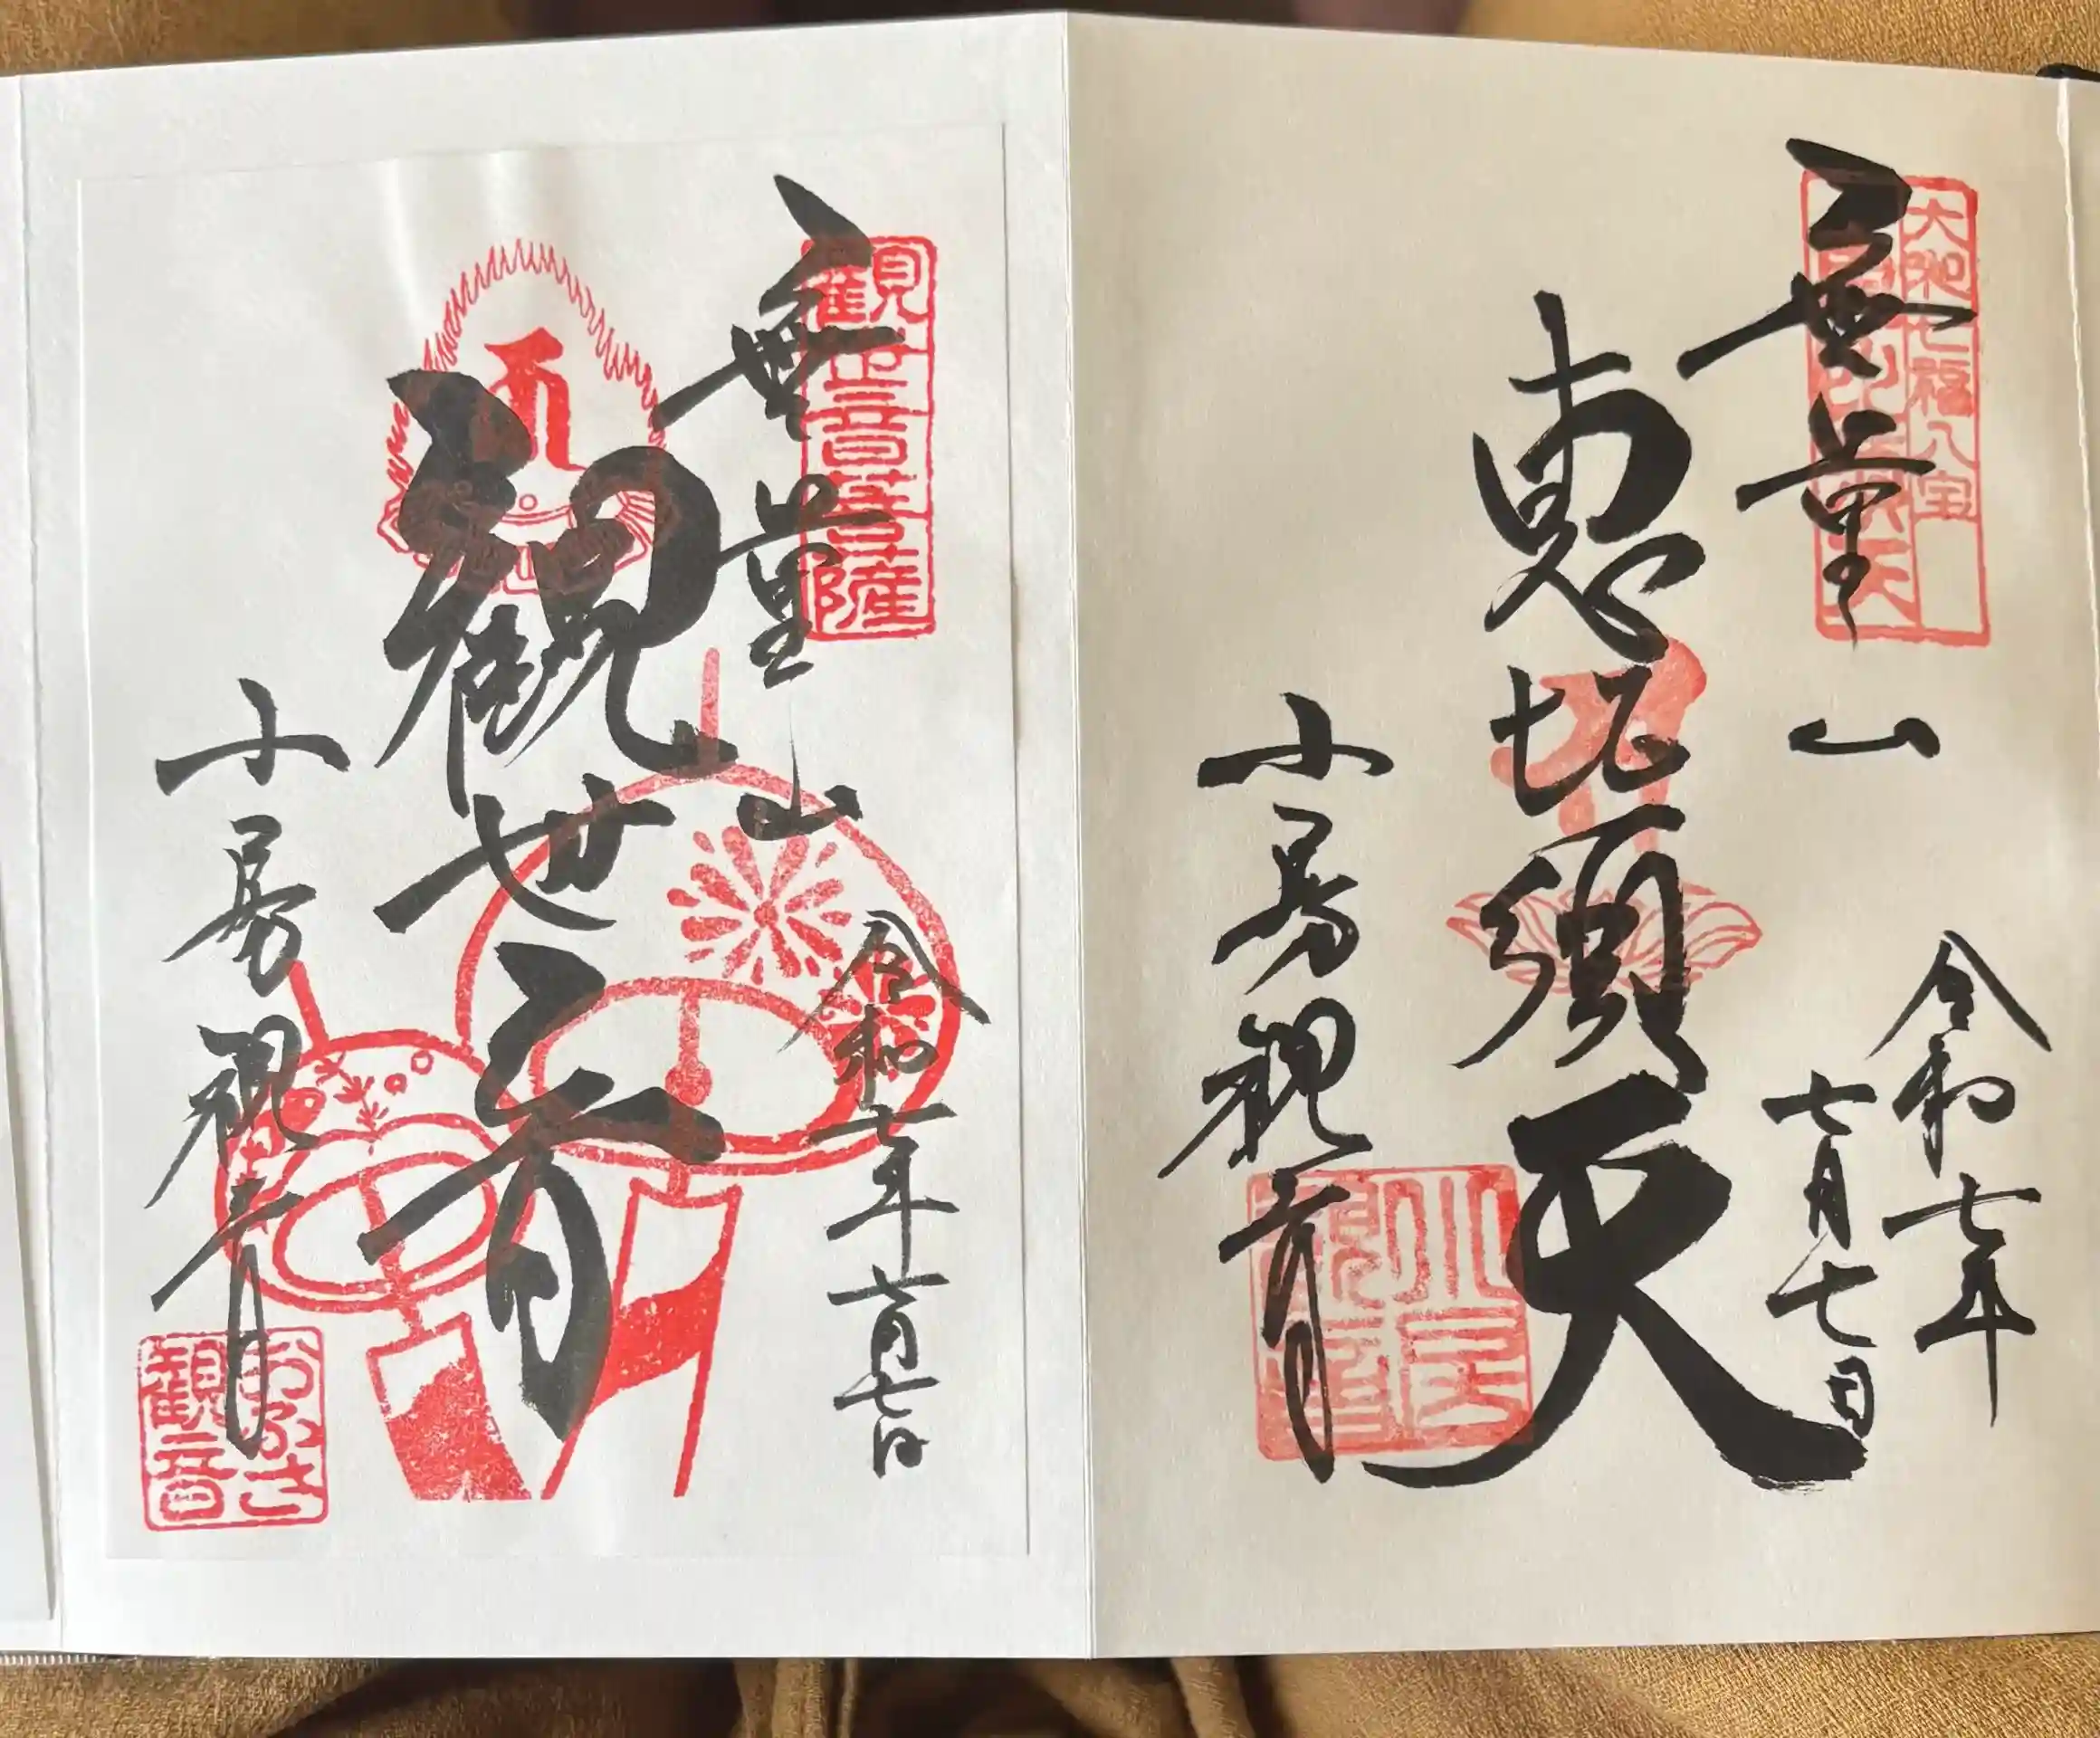 大和七福八宝
無量山
令和七年
七月七日
恵比須天
小房観音
小房
観音
観世音菩薩
無量山
令和七年七月七日
観世音
小房観音
おふさ
観音